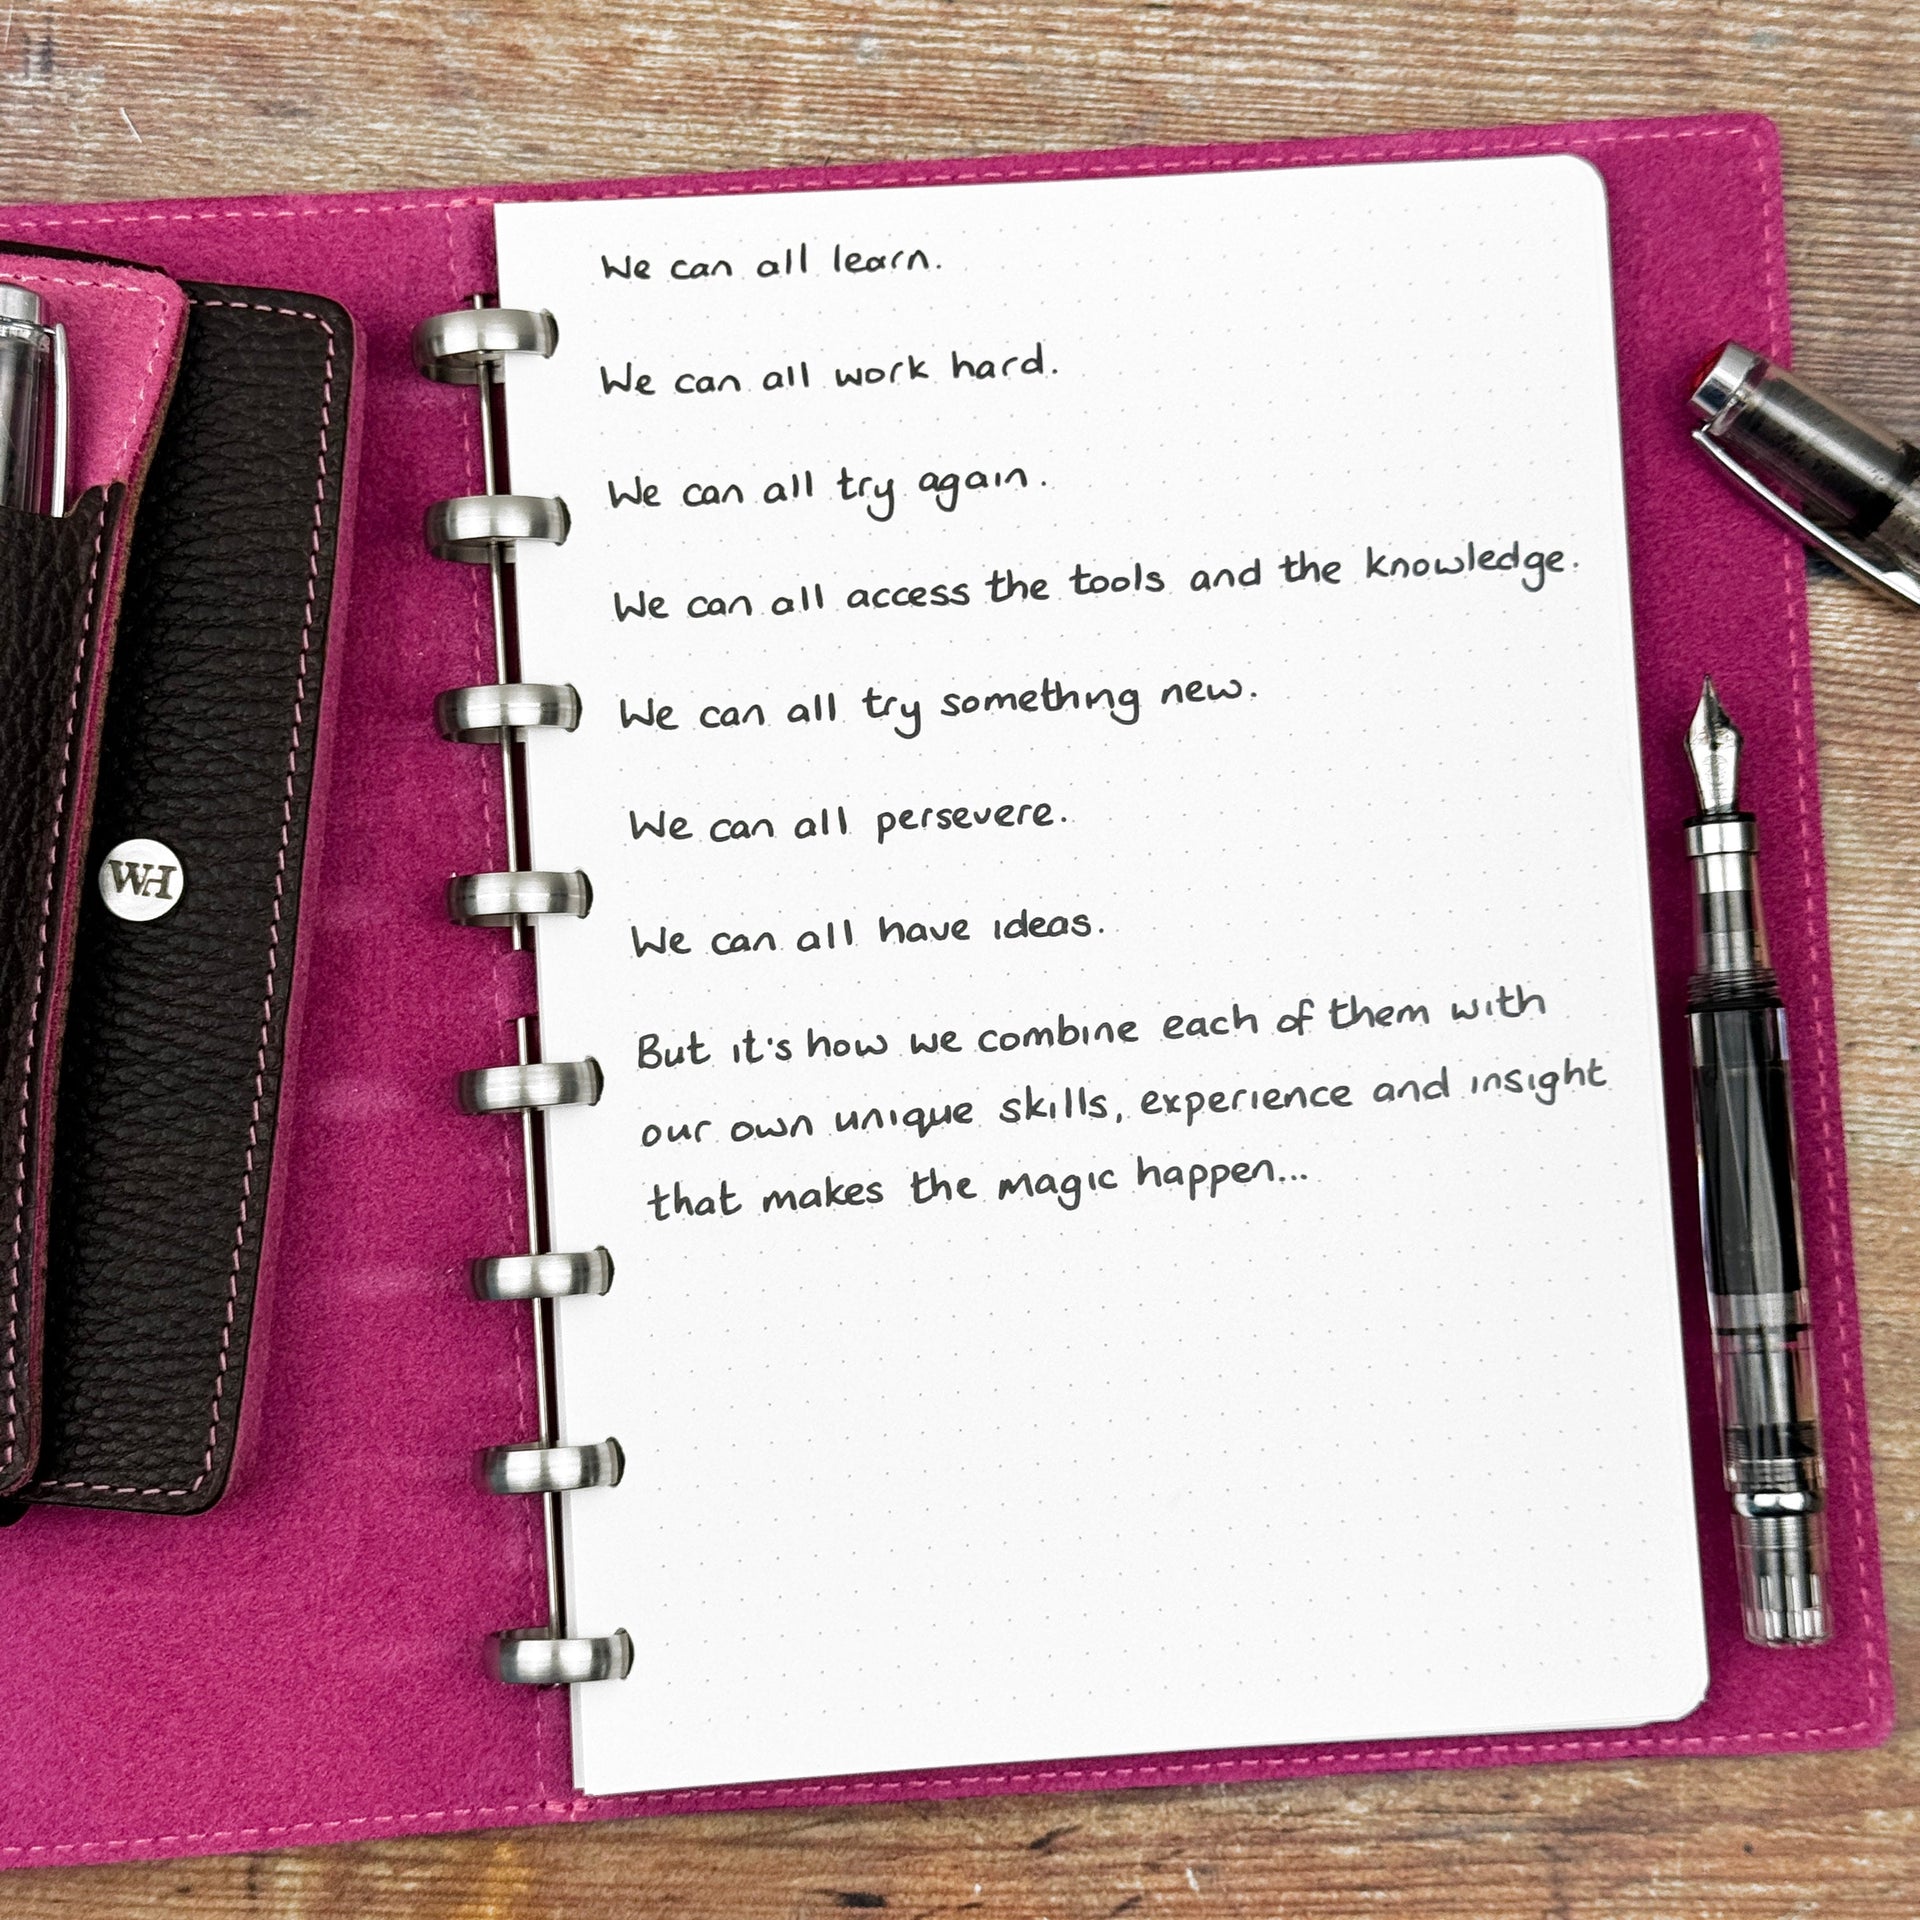 We can all learn.
We can all work hard.
We can all try again.
We can all access the tools and the knowledge.
We can all try something new.
We can all persevere.
We can all have ideas.
But it's how we combine each of them with
our own unique skills, experience and insight
that makes the magic happen...
WH